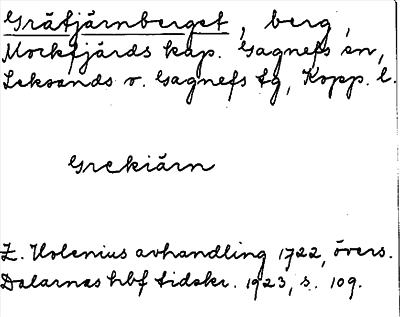 Gråtjärnberget, berg,
Mockfjärds kap. Gagnefs sn,
Leksands o. Gagnefs tg, Kopp. l.
Grekiärn
Z. Holenius avhandling 1722, övers.
Dalarnas hbf tidskr. 1923, s. 109.